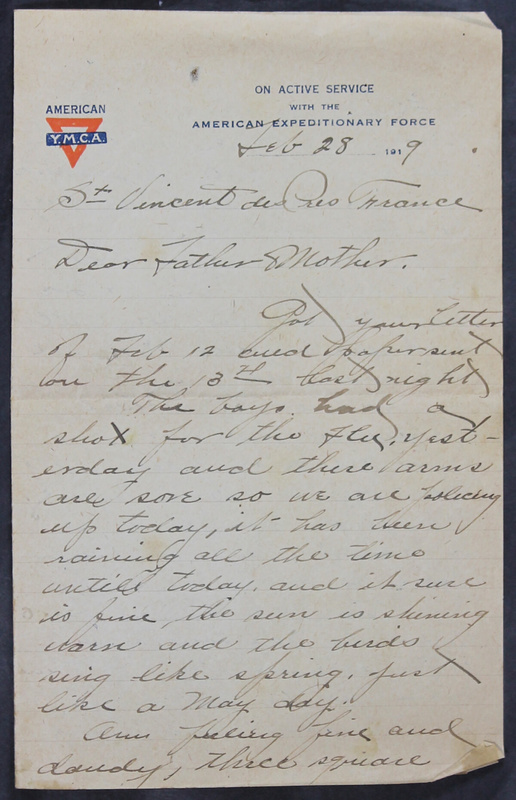 AMERICAN
Y.M.C.A.
ON ACTIVE SERVICE
WITH THE
AMERICAN EXPEDITIONARY FORCE
Feb 28 1919
St Vincent des Pres France
Dear Father & Mother.
Got your letter
of Feb 12 and paper sent
on the 13th last night
The boys had a
shot for the Flu, yest-
erday and there arms
are sore so we are policing
up today, it has been
raining all the time
untill today. and it sure
is fine the sun is shining
warm and the birds
sing like spring. just
like a May day.
Am feeling fine and
dandy, three square